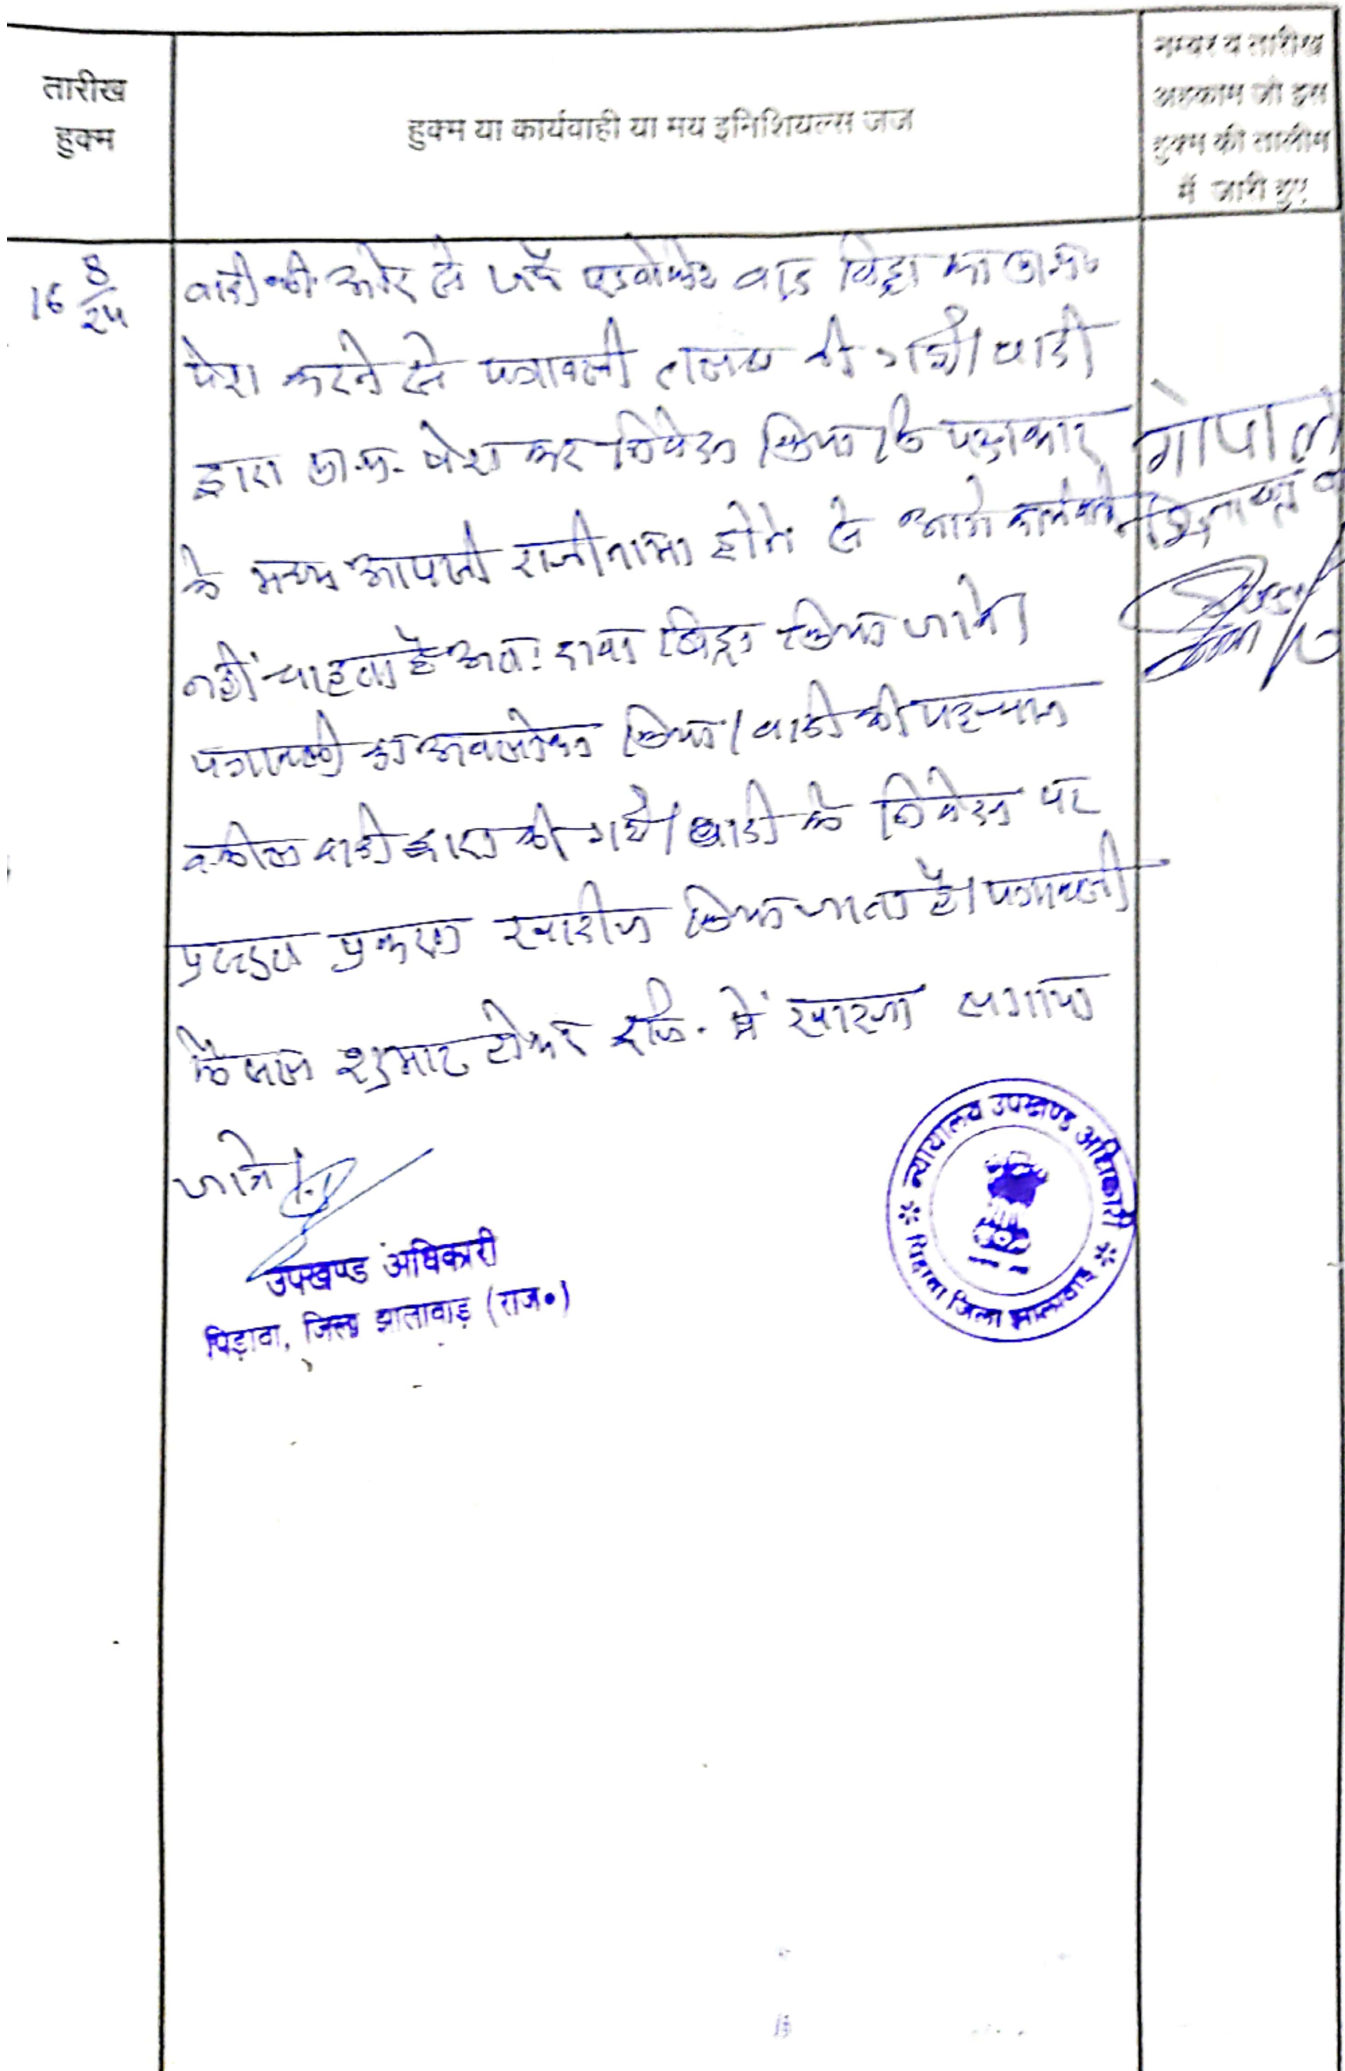 तारीख
हुक्म
हुक्म या कार्यवाही या मय इनिशियल्स जज
नम्बर व तारीख
अहकाम जो इस
हुक्म की तालीम
में जारी हुए
16 8/24
वादी की ओर से जर्ये एडवोकेट वाद विड्रा का प्रा.पत्र
पेश करने से पत्रावली तलब की गयी। वादी
द्वारा प्रा.प. पेश कर निवेदन किया कि पक्षकार
के मध्य आपसी राजीनामा होने से आगे कार्यवाही
नहीं चाहता है अतः दावा विड्रा किया जावे।
पत्रावली का अवलोकन किया। वादी की पहचान
वकील वादी द्वारा की गयी। वादी के निवेदन पर
प्रकरण खारीज किया जाता है। पत्रावली
फैसल शुमार होकर दर्ज. में लगाया
जावे।
गोपाल
उपखण्ड अधिकारी
पिड़ावा, जिला झालावाड़ (राज॰)
न्यायालय उपखण्ड अधिकारी
पिड़ावा जिला झालावाड़